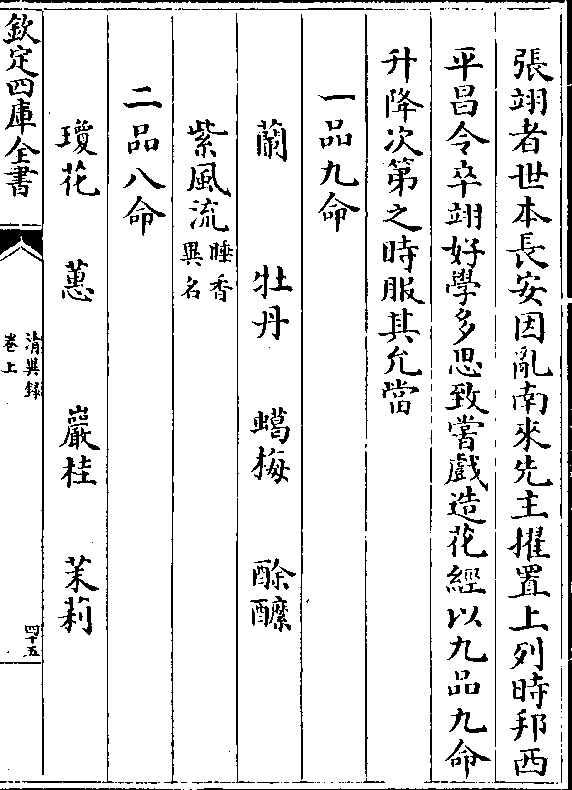 張翊者世本長安因亂南來先主擢置上列時邦西
平昌令卒翊好學多思致嘗戲造花經以九品九命
升降次第之時服其允當
一品九命
蘭 牡丹 蠟梅 酴醿
紫風流睡香異名
二品八命
瓊花 蕙 巖桂 茉莉
欽定四庫全書
清異録
卷上
四十五